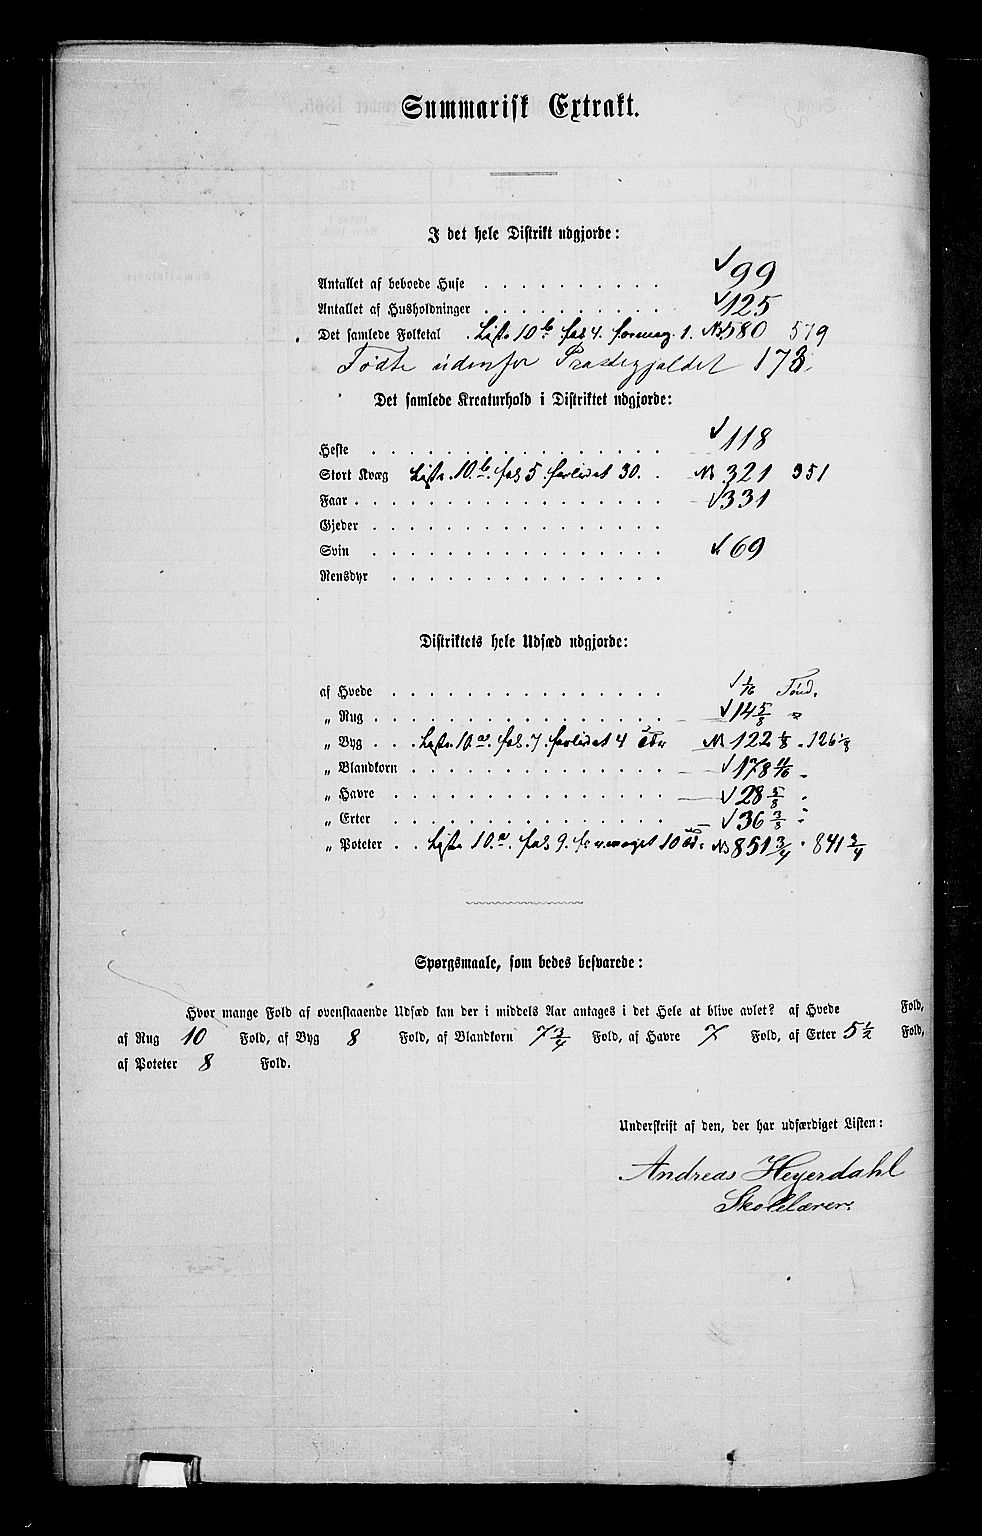 Summarisk Extrakt.
I det hele Distrikt udgjorde:
Antallet af beboede Huse . . . . . . . . . . 99
Antallet af Husholdninger . . . . . . . . . . 125
Det samlede Folketal . Liste 10 b fol 4. formeg. 1. NB 580 579
Fødte udenfor Præstegjeldet 173.
Det samlede Kreaturhold i Distriktet udgjorde:
Heste . . . . . . . . . . . . . . . . 118
Stort Kvæg Liste 10 b. fol 5 forlidet 30. . NB 321 351
Faar . . . . . . . . . . . . . . . . . 331
Gjeder . . . . . . . . . . . . . . . .
Svin . . . . . . . . . . . . . . . . 69
Rensdyr . . . . . . . . . . . . . . .
Distriktets hele Udsæd udgjorde:
af Hvede . . . . . . . . . . . . . . . 1/16 Tønd.
„ Rug . . . . . . . . . . . . . . . . 14 5/8 "
„ Byg . . . Liste 10 a. fol. 7. forlidet 4 NB 122 1/8 " 126 1/8
„ Blandkorn . . . . . . . . . . . . . . 178 11/16 "
„ Havre . . . . . . . . . . . . . . . 28 5/8 "
„ Erter . . . . . . . . . . . . . . . 36 3/8 "
„ Poteter . . Liste 10 a. fol 9. formeget 10 NB 851 3/4 " 841 3/4
Spørgsmaale, som bedes besvarede:
Hvor mange Fold af ovenstaaende Udsæd kan der i middels Aar antages i det Hele at blive avlet? af Hvede Fold,
af Rug 10 Fold, af Byg 8 Fold, af Blandkorn 7 3/4 Fold, af Havre 7 Fold, af Erter 5 1/2 Fold,
af Poteter 8 Fold.
Underskrift af den, der har udfærdiget Listen:
Andreas Heyerdahl
Skolelærer.